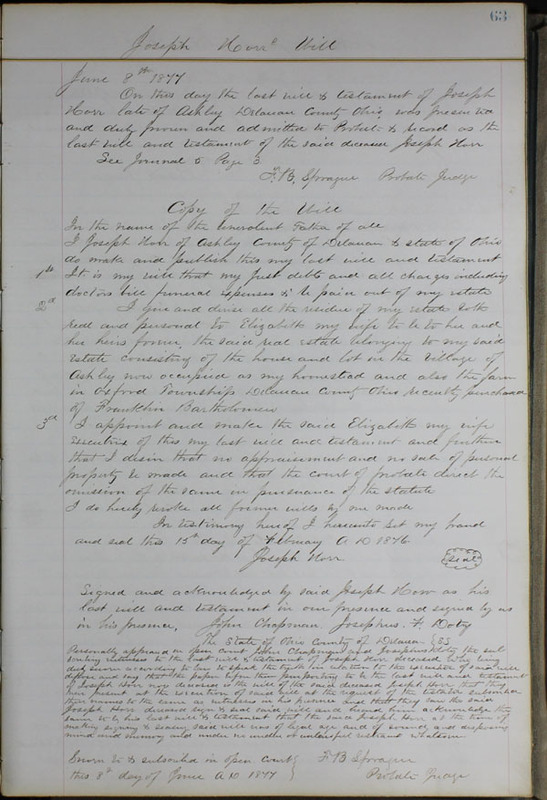 63
Joseph Horr's Will
June 8th 1877
On this day the last will & testament of Joseph
Horr late of Ashley Delaware County Ohio was presented
and duly proven and admitted to Probate & record as the
last will and testament of the said deceased Joseph Horr
See Journal 5 Page 3
F. B. Sprague Probate Judge
Copy of the Will
In the name of the Benevolent Father of all
I Joseph Horr of Ashley County of Delaware & state of Ohio
do make and publish this my last will and testament
1st It is my will that my just debts and all charges including
doctors bill funeral expenses & be paid out of my estate
2d I give and devise all the residue of my estate both
real and personal to Elizabeth my wife to be to her and
her heirs forever, the said real estate belonging to my said
estate consisting of the house and lot in the village of
Ashley now occupied as my homestead and also the farm
in Oxford Township Delaware County Ohio recently purchased
of Franklin Bartholomew
3d I appoint and make the said Elizabeth my wife
executrix of this my last will and testament and further
that I desire that no appraisement and no sale of personal
property be made and that the court of probate direct the
omission of the same in pursuance of the statute
I do hereby revoke all former wills by me made
In testimony hereof I hereunto set my hand
and seal this 15th day of February A D 1876
Joseph Horr (Seal)
Signed and acknowledged by said Joseph Horr as his
last will and testament in our presence and signed by us
in his presence, John Chapman Josephus. F Doty
The State of Ohio County of Delaware } SS
Personally appeared in open court John Chapman and Josephus Doty the sub
scribing witnesses to the last will & testament of Joseph Horr deceased who being
duly sworn according to law to speak the truth in relation to the execution of said will
depose and say that the paper before them purporting to be the last will and testament
of Joseph Horr now deceased is the will of the said deceased Joseph Horr, that they
were present at the execution of said will at the request of the testator subscribed
their names to the same as witnesses in his presence and that they saw the said
Joseph Horr deceased sign & seal said will and heard him acknowledge the
same to be his last will & testament that the said Joseph Horr at the time of
making signing & sealing said will was of legal age and of sound and disposing
mind and memory and under no undue or unlawful restraint whatsoever
Sworn to & subscribed in open court } F B Sprague
this 8th day of June A D 1877 } Probate Judge